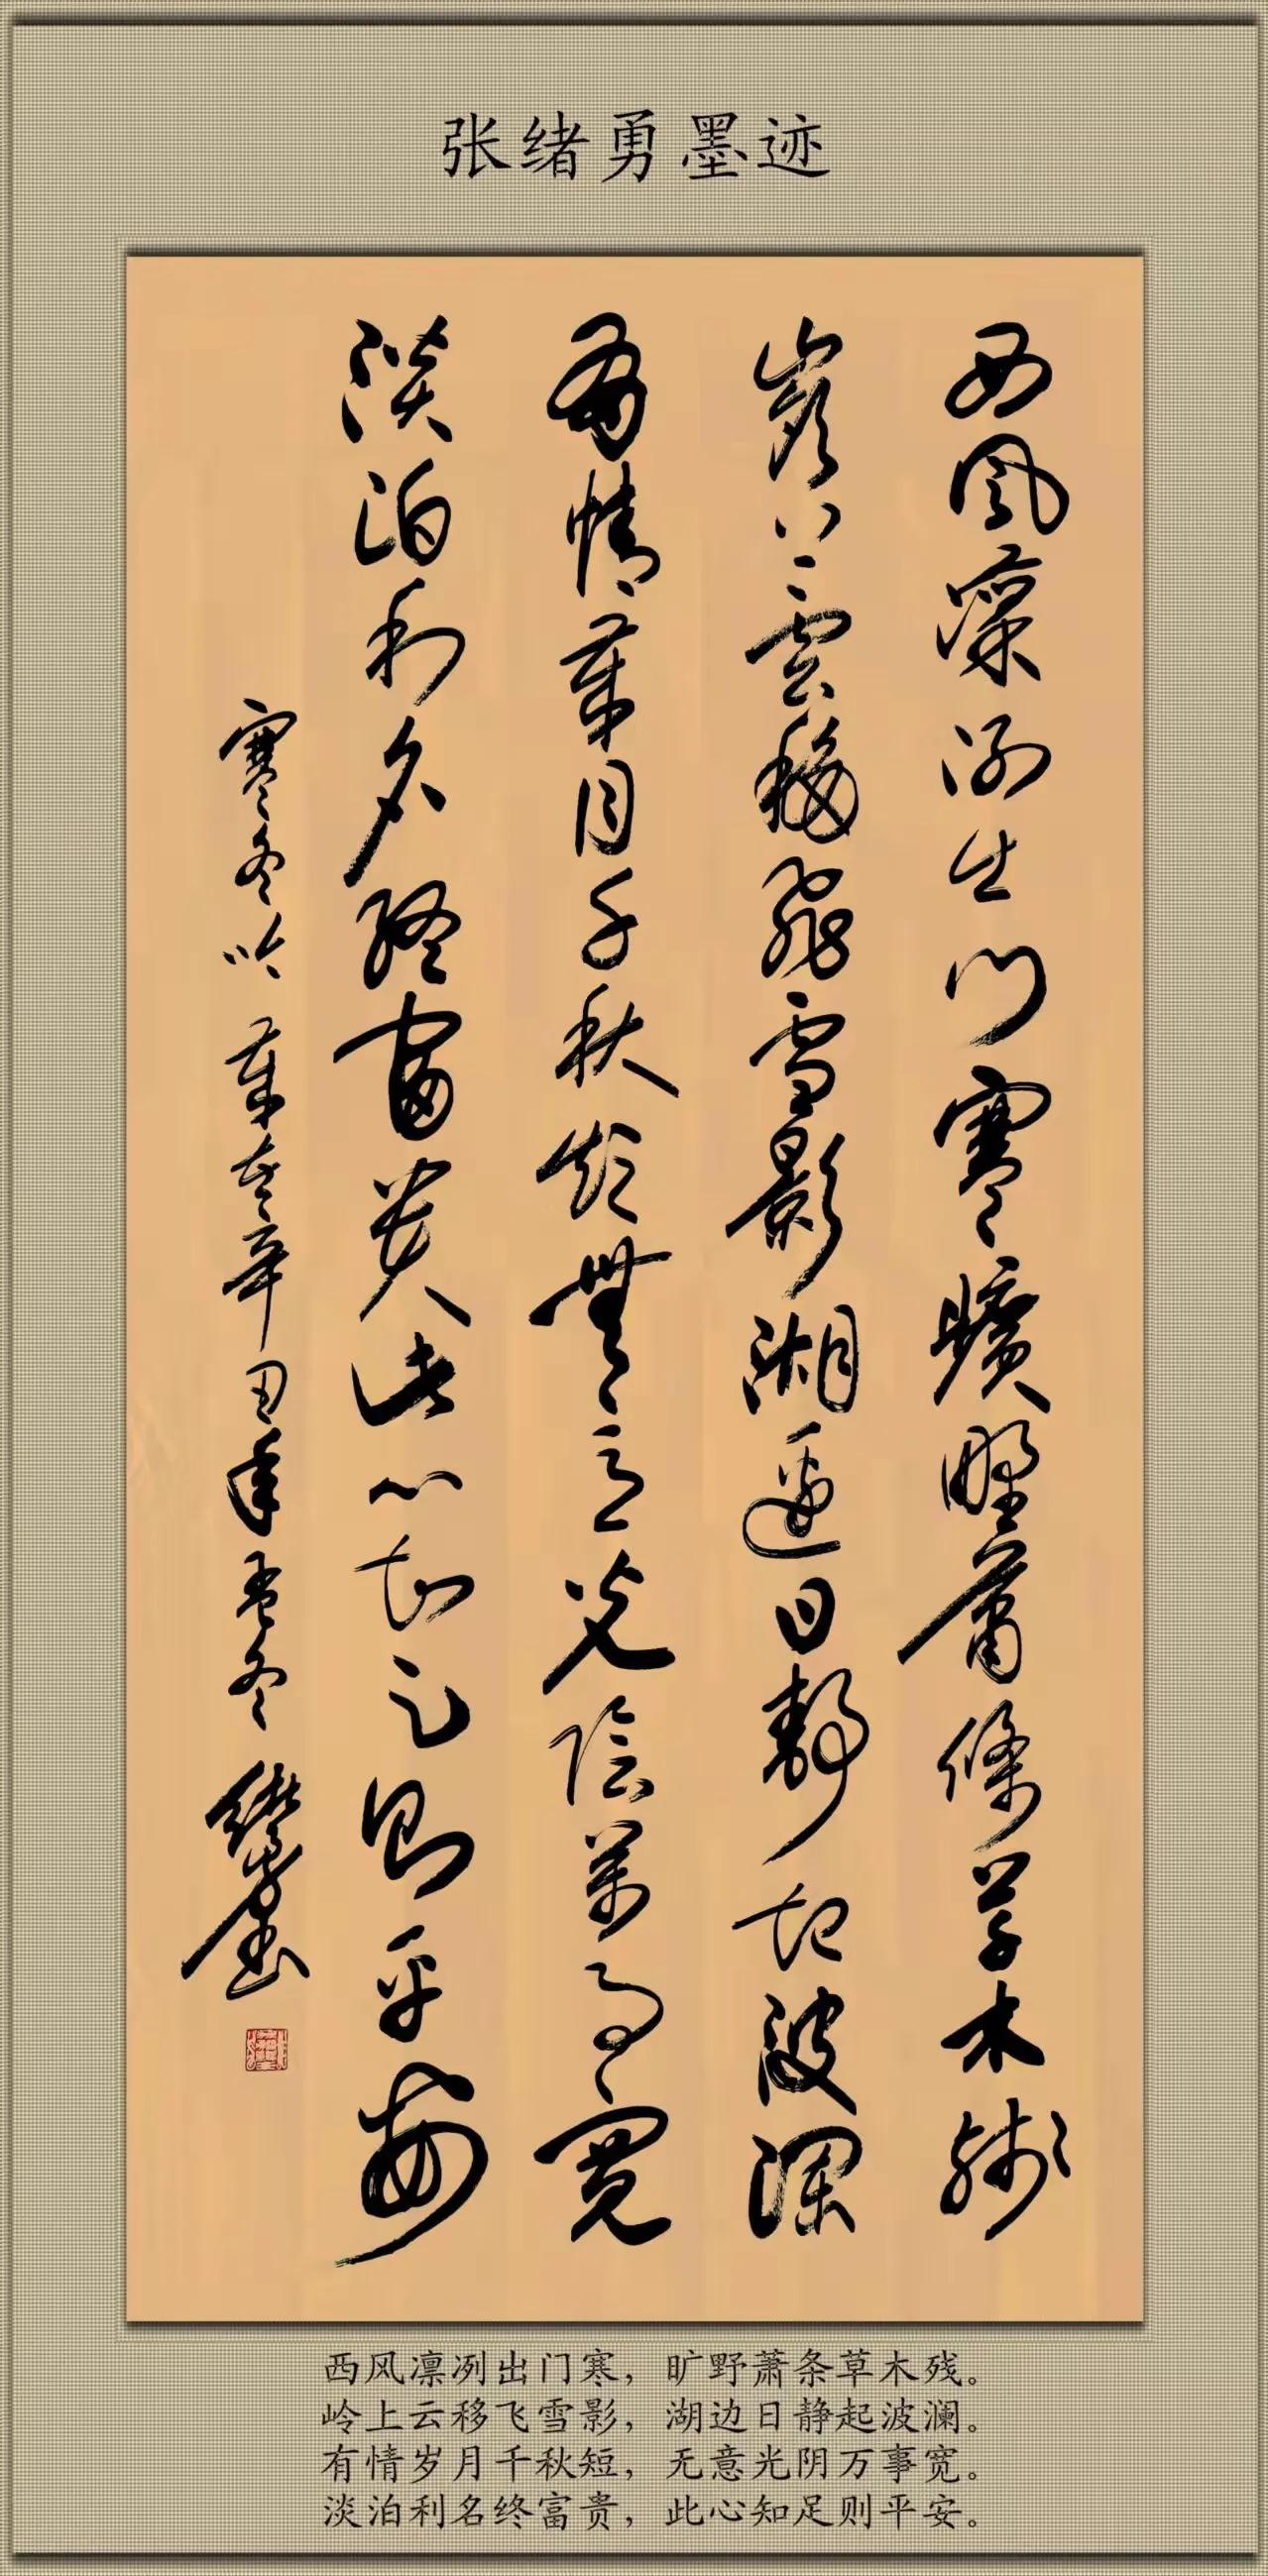 张绪勇墨迹
西风凛冽出门寒旷野萧条草木残
岭上云移飞雪影湖边日静起波澜
有情岁月千秋短无意光阴万事宽
淡泊利名终富贵此心知足则平安
寒冬吟 岁在辛丑年孟冬 绪勇书
西风凛冽出门寒，旷野萧条草木残。
岭上云移飞雪影，湖边日静起波澜。
有情岁月千秋短，无意光阴万事宽。
淡泊利名终富贵，此心知足则平安。